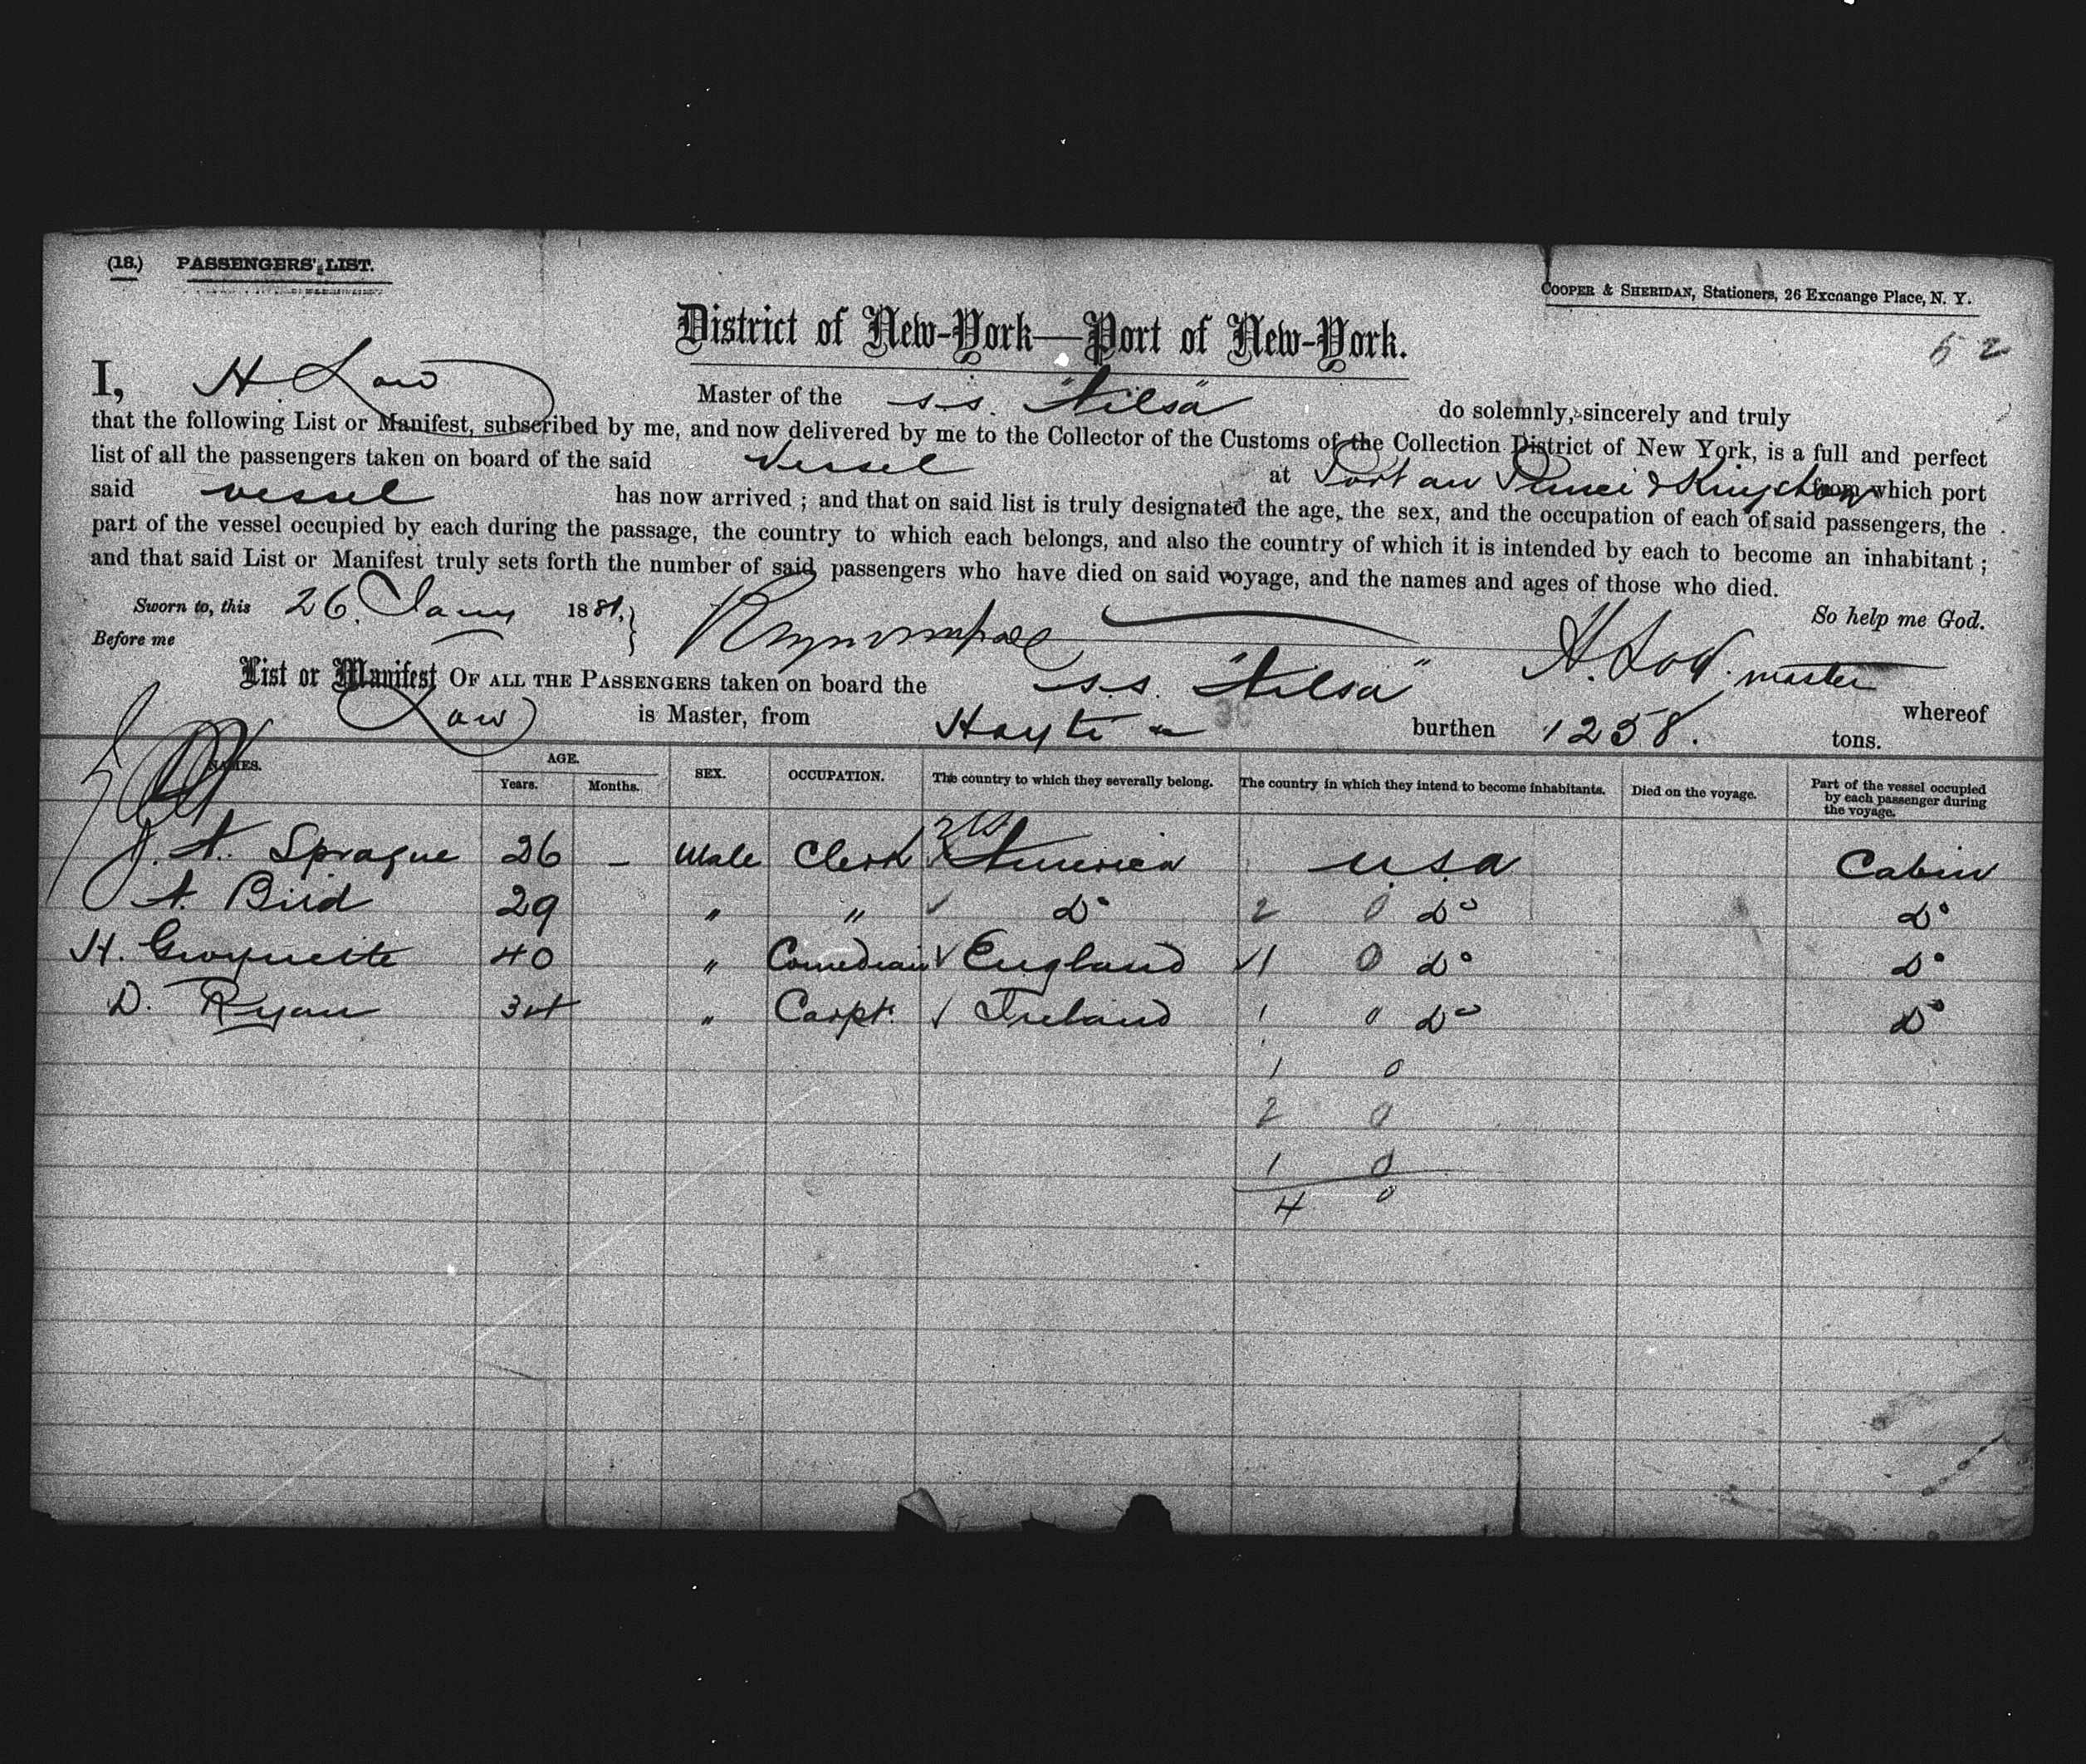 (18.) PASSENGERS' LIST.
COOPER & SHERIDAN, Stationers, 26 Exchange Place, N. Y.
52
District of New-York—Port of New-York.
I, H. Low Master of the s.s. "Ailsa" do solemnly, sincerely and truly
that the following List or Manifest, subscribed by me, and now delivered by me to the Collector of the Customs of the Collection District of New York, is a full and perfect
list of all the passengers taken on board of the said Vessel at Port au Prince & Kingston from which port
said vessel has now arrived; and that on said list is truly designated the age, the sex, and the occupation of each of said passengers, the
part of the vessel occupied by each during the passage, the country to which each belongs, and also the country of which it is intended by each to become an inhabitant;
and that said List or Manifest truly sets forth the number of said passengers who have died on said voyage, and the names and ages of those who died.
Sworn to, this 26. Jany 1881. So help me God.
Before me H. Low. master
List or Manifest OF ALL THE PASSENGERS taken on board the s.s. "Ailsa" whereof
Low is Master, from Hayti burthen 1258. tons.
NAMES. AGE. Years. Months. SEX. OCCUPATION. The country to which they severally belong. The country in which they intend to become inhabitants. Died on the voyage. Part of the vessel occupied by each passenger during the voyage.
J. A. Sprague 26 – Male Clerk America U.S.A Cabin
A. Bird 29 " " Do 2 0 Do Do
H. 40 " Comedian England 1 0 Do Do
D. Ryan 34 " Carpt. Ireland 1 0 Do Do
1 0
2 0
1 0
4 0